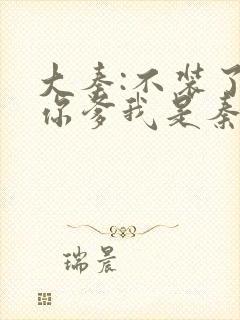 大秦:不装了
你爹我是秦
瑞晨